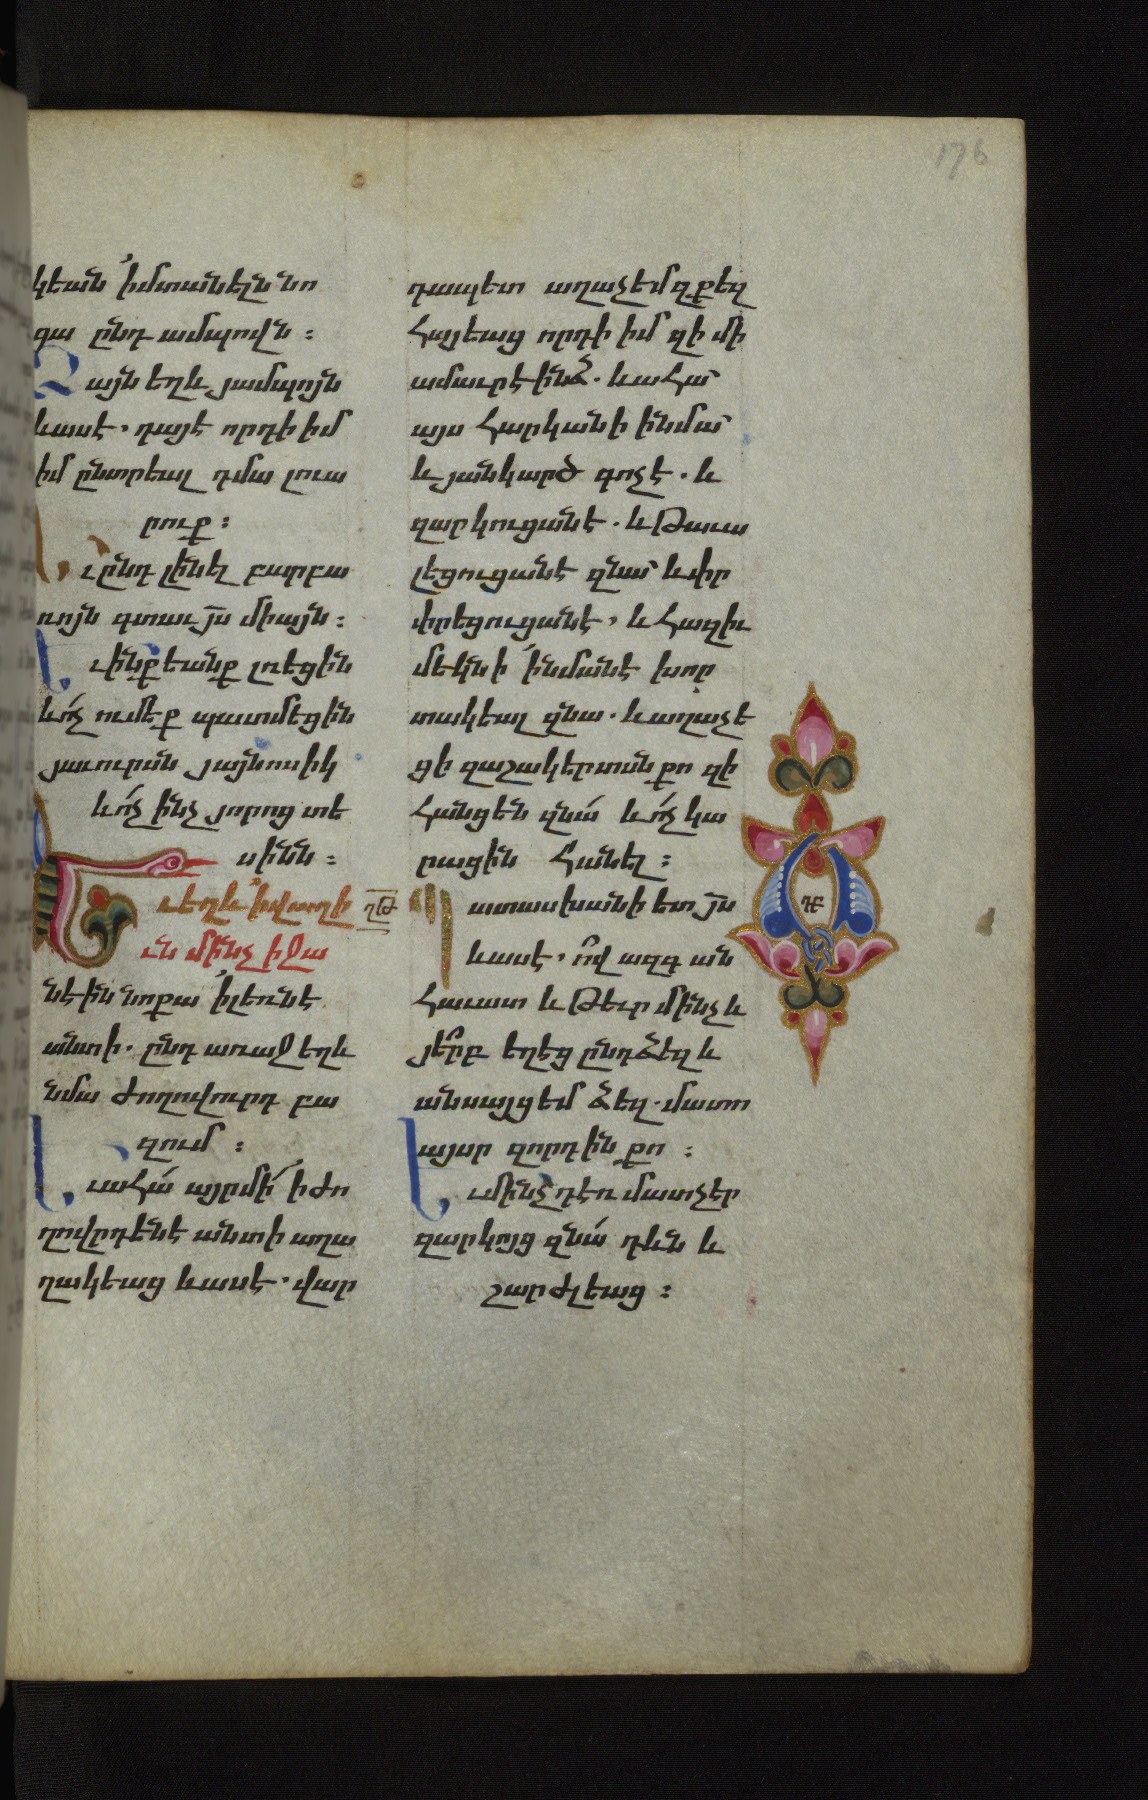 176
կեան՝ ի մտանելն նո
ցա ընդ ամպովն ։
Ձայն եղև յամպոյն
և ասէ. դայ է որդի իմ
իմ ընտրեալ դմա լուա
րուք ։
Եւ ընդ լինել բարբա
ռոյն գտաւ յս միայն ։
Եւ ինքեանք լռեցին
և ոչ ումեք պատմեցին
յաւուրսն յայնոսիկ
և ոչ ինչ յորոց տե
սինն ։
Եւ եղև ՝ի վաղի
ւն մինչ իջա
նէին նոքա ՝ի լեռնէ
անտի. ընդ առաջ եղև
նմա ժողովուրդ բա
զում ։
Եւ ահա այր մի ՝ի ժո
ղովրդենէ անտի աղա
ղակեաց և ասէ. վար
ղթ
դապետ աղաչեմ զքեզ
հայեաց որդի իմ զի մի
ամաւր է ինձ. և ահա
այս հարկանի ի նմա
և յանկարծ գոչէ. և
զարկուցանէ. և թաւա
լեցուցանէ զնա և փր
փրեցուցանէ. և հազիւ
մեկնի ՝ի նմանէ խոր
տակեալ զնա. և աղաչե
ցի զաշակերտսն քո զի
հանցեն զնա և ոչ կա
րացին հանել ։
Պատասխանի ետ յս
և ասէ. ով ազգ ան
հաւատ և թեւր մինչև
յերբ եղէց ընդ ձեզ և
անսայցեմ ձեզ. մատո
այսր զորդին քո ։
Եւ մինչդեռ մատչէր
զարկոյց զնա դևն և
շարժլեաց ։